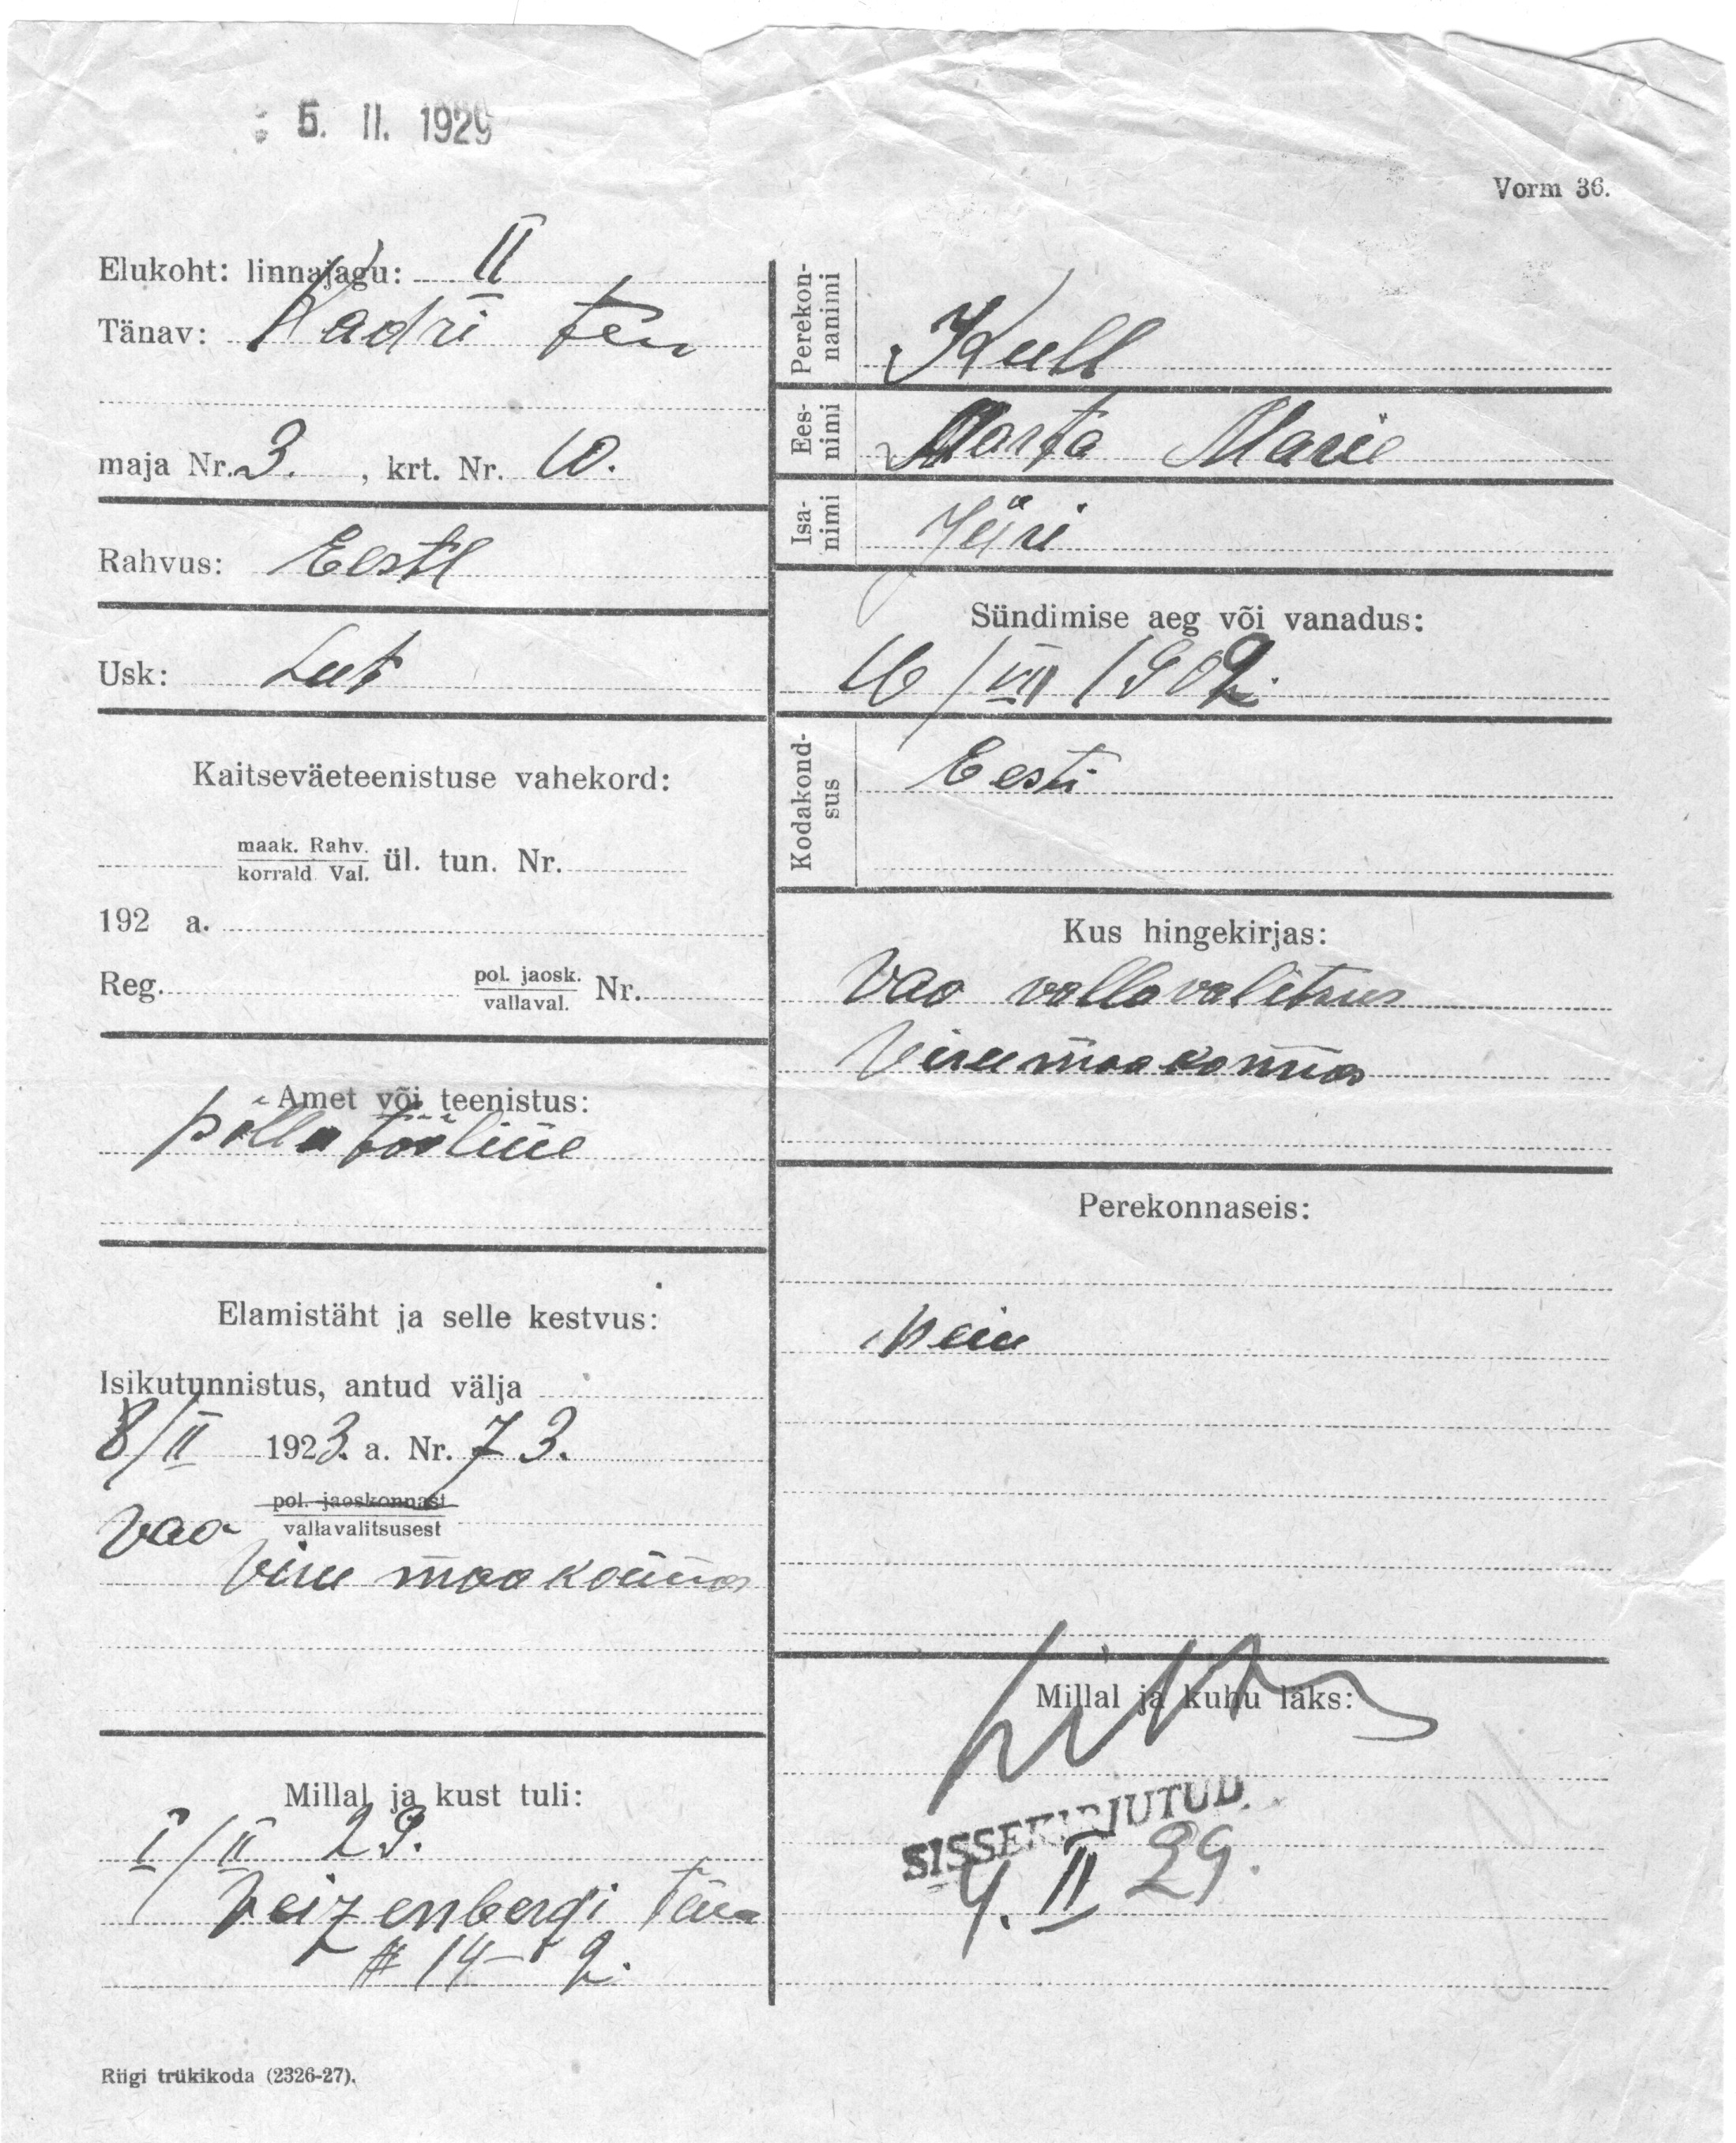 5. II. 1929
Vorm 36.
Elukoht: linnajagu: II
Tänav: Kadri tän
maja Nr. 3. , krt. Nr. 10.
Rahvus: Eesti
Usk: Lut
Kaitseväeteenistuse vahekord:
maak. Rahv.
korrald. Val. ül. tun. Nr.
192 a.
Reg. pol. jaosk.
vallaval. Nr.
Amet või teenistus:
põllutööline
Elamistäht ja selle kestvus:
Isikutunnistus, antud välja
8/II 1923. a. Nr. 73.
pol. jaoskonnast
Vao vallavalitsusest
Viru maakonnas
Millal ja kust tuli:
I/II 29.
Veizenbergi tän
# 14-2.
Riigi trükikoda (2326-27).
Perekon-
nanimi
Kull
Ees-
nimi
Marta Marie
Isa-
nimi
Jüri
Sündimise aeg või vanadus:
16/VII 1902.
Kodakond-
sus
Eesti
Kus hingekirjas:
Vao vallavalitsus
Virumaakonnas
Perekonnaseis:
Neiu
Millal ja kuhu läks:
SISSEKIRJUTUD.
4. II 29.